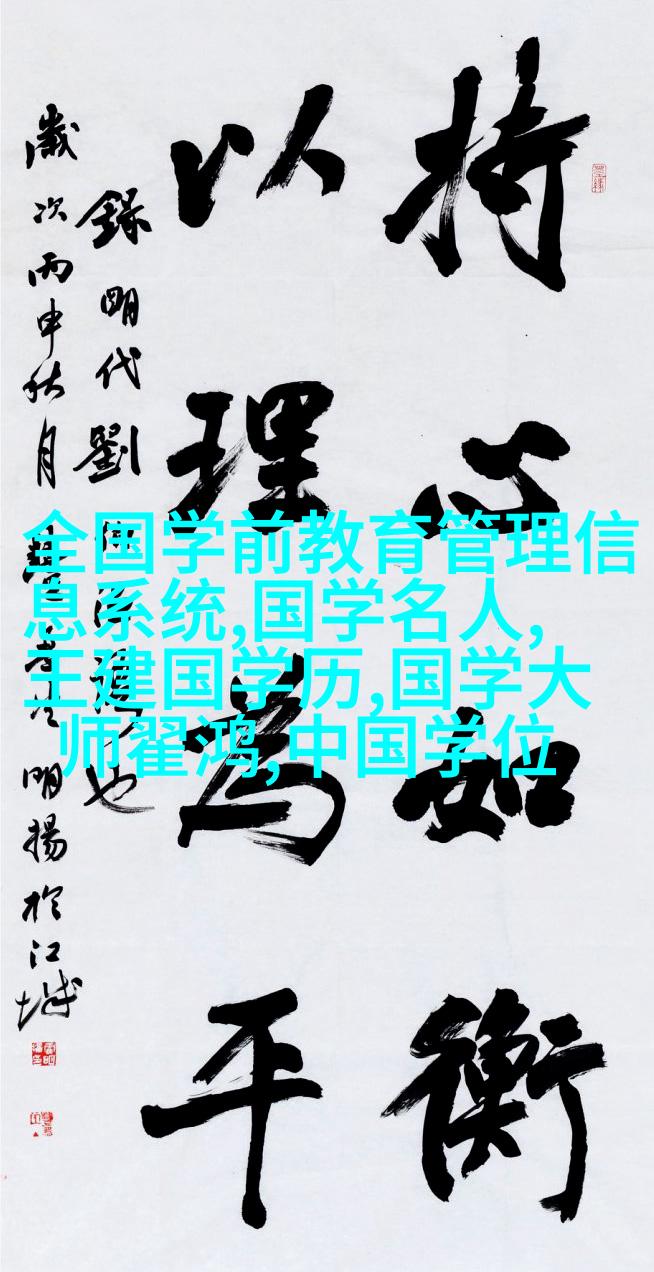 持心如衡
以理為平
錄明代劉也
歲次丙申秋月明揚於江城
全国学前教育管理信
息系统,国学名人,
王建国学历,国学大
师翟鸿,中国学位